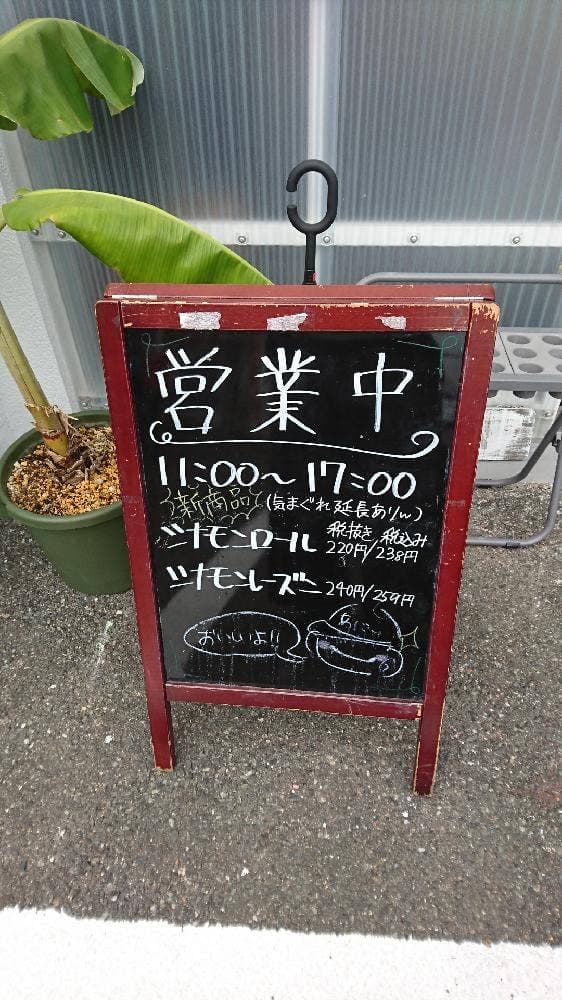 営業中
11:00～17:00
新商品 (気まぐれ延長ありw)
税抜き 税込み
シナモンロール 220円/238円
シナモンレーズン 240円/259円
おいしいよ!!